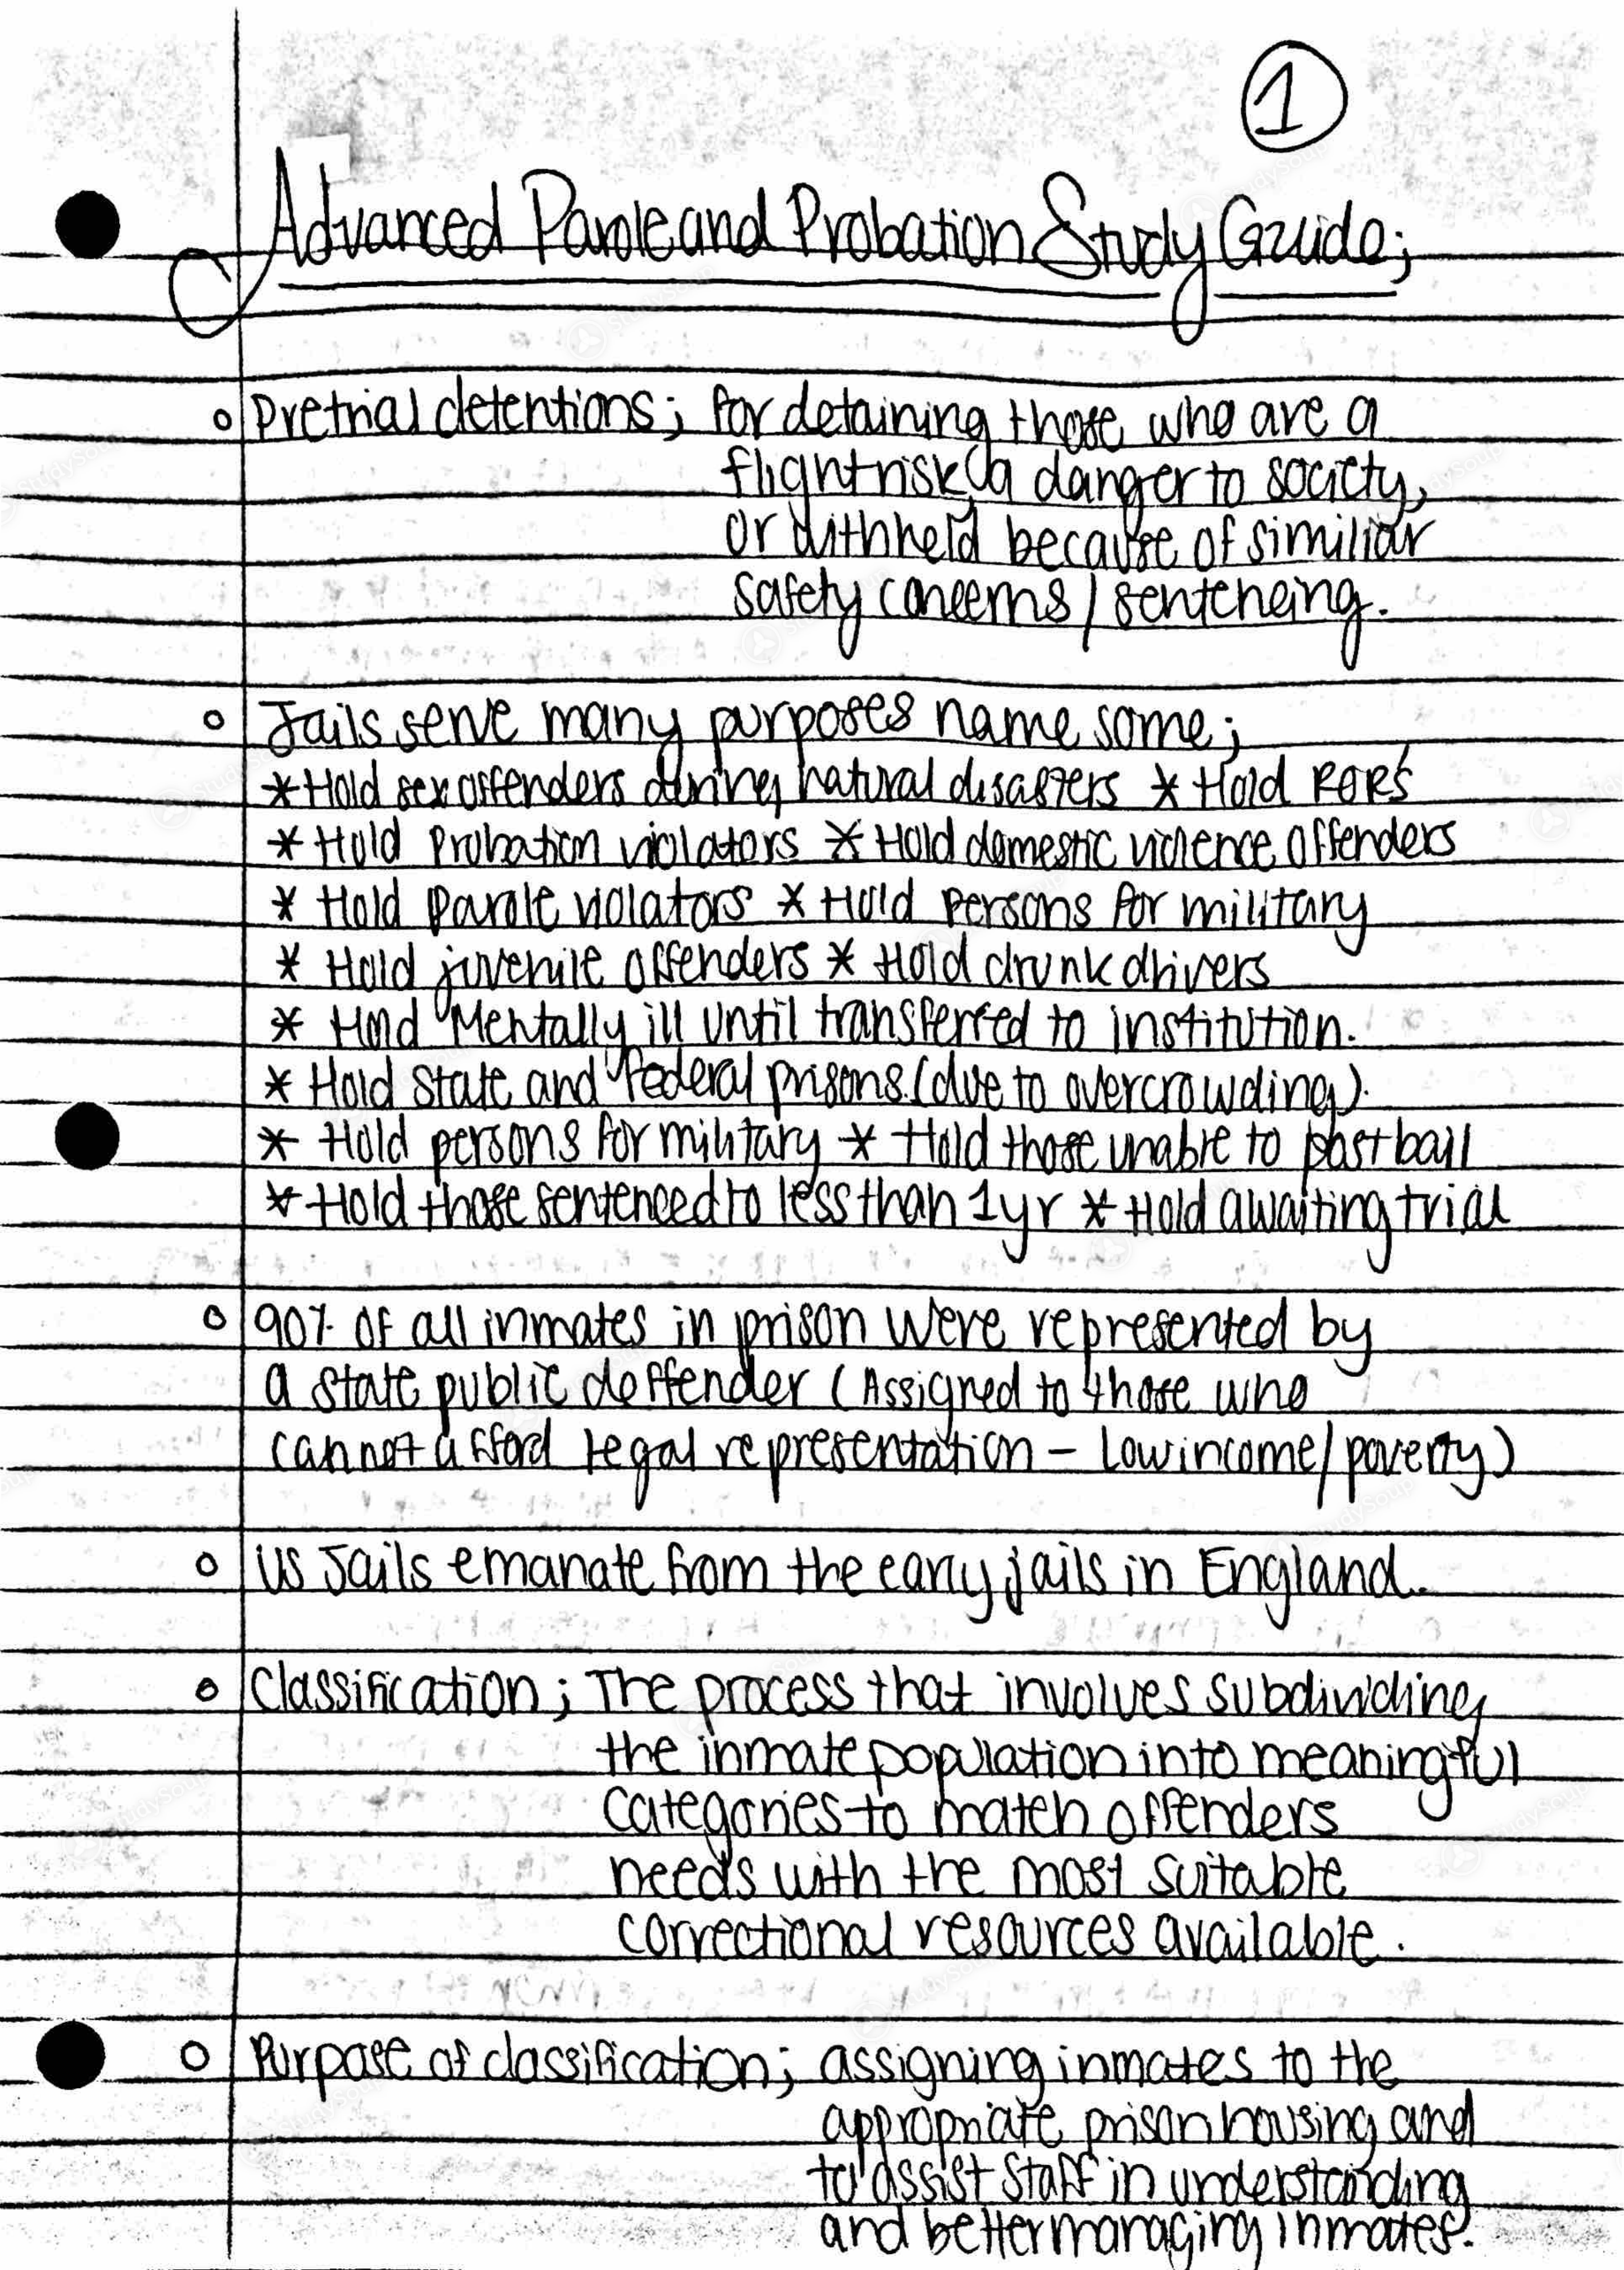 1
Advanced Parole and Probation Study Guide;
o Pretrial detentions; for detaining those who are a
flight risk, a danger to society,
or withheld because of similiar
safety concerns/sentencing.
o Jails serve many purposes name some;
* Hold sex offenders during natural disasters * Hold ROR's
* Hold Probation violators * Hold domestic violence offenders
* Hold parole violators * Hold persons for military
* Hold juvenile offenders * Hold drunk drivers
* Hold Mentally ill until transferred to institution.
* Hold state and federal prisons. (due to overcrowding).
* Hold persons for military * Hold those unable to post bail
* Hold those sentenced to less than 1yr * Hold awaiting trial
o 90% of all inmates in prison were represented by
a state public deffender (Assigned to those who
cannot afford legal representation - Low income/poverty)
o US Jails emanate from the early jails in England.
o Classification; The process that involves subdividing
the inmate population into meaningful
categories to match offenders
needs with the most suitable
correctional resources available.
o Purpose of classification; assigning inmates to the
appropriate prison housing and
to assist staff in understanding
and better managing inmates.
StudySoup